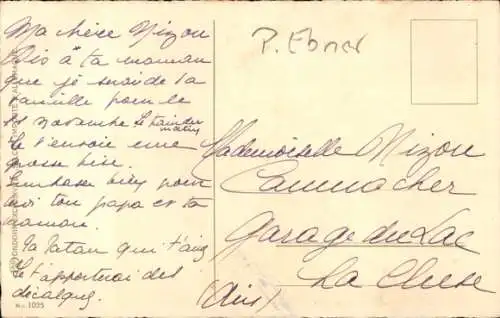 P. Ebner
Ma chère Nizou
Dis à ta maman
que je serai de la
famille pour le
11 novembre le train du
matin
Je t'envoie une
grosse bise.
Embrasse bien pour
moi ton papa et ta
maman.
Ta tatan qui t'aime
Je t'apporterai des
décalques.
No. 1035
Mademoiselle Nizou
Cammacher
Garage du Lac
La Cluse
(Ain)